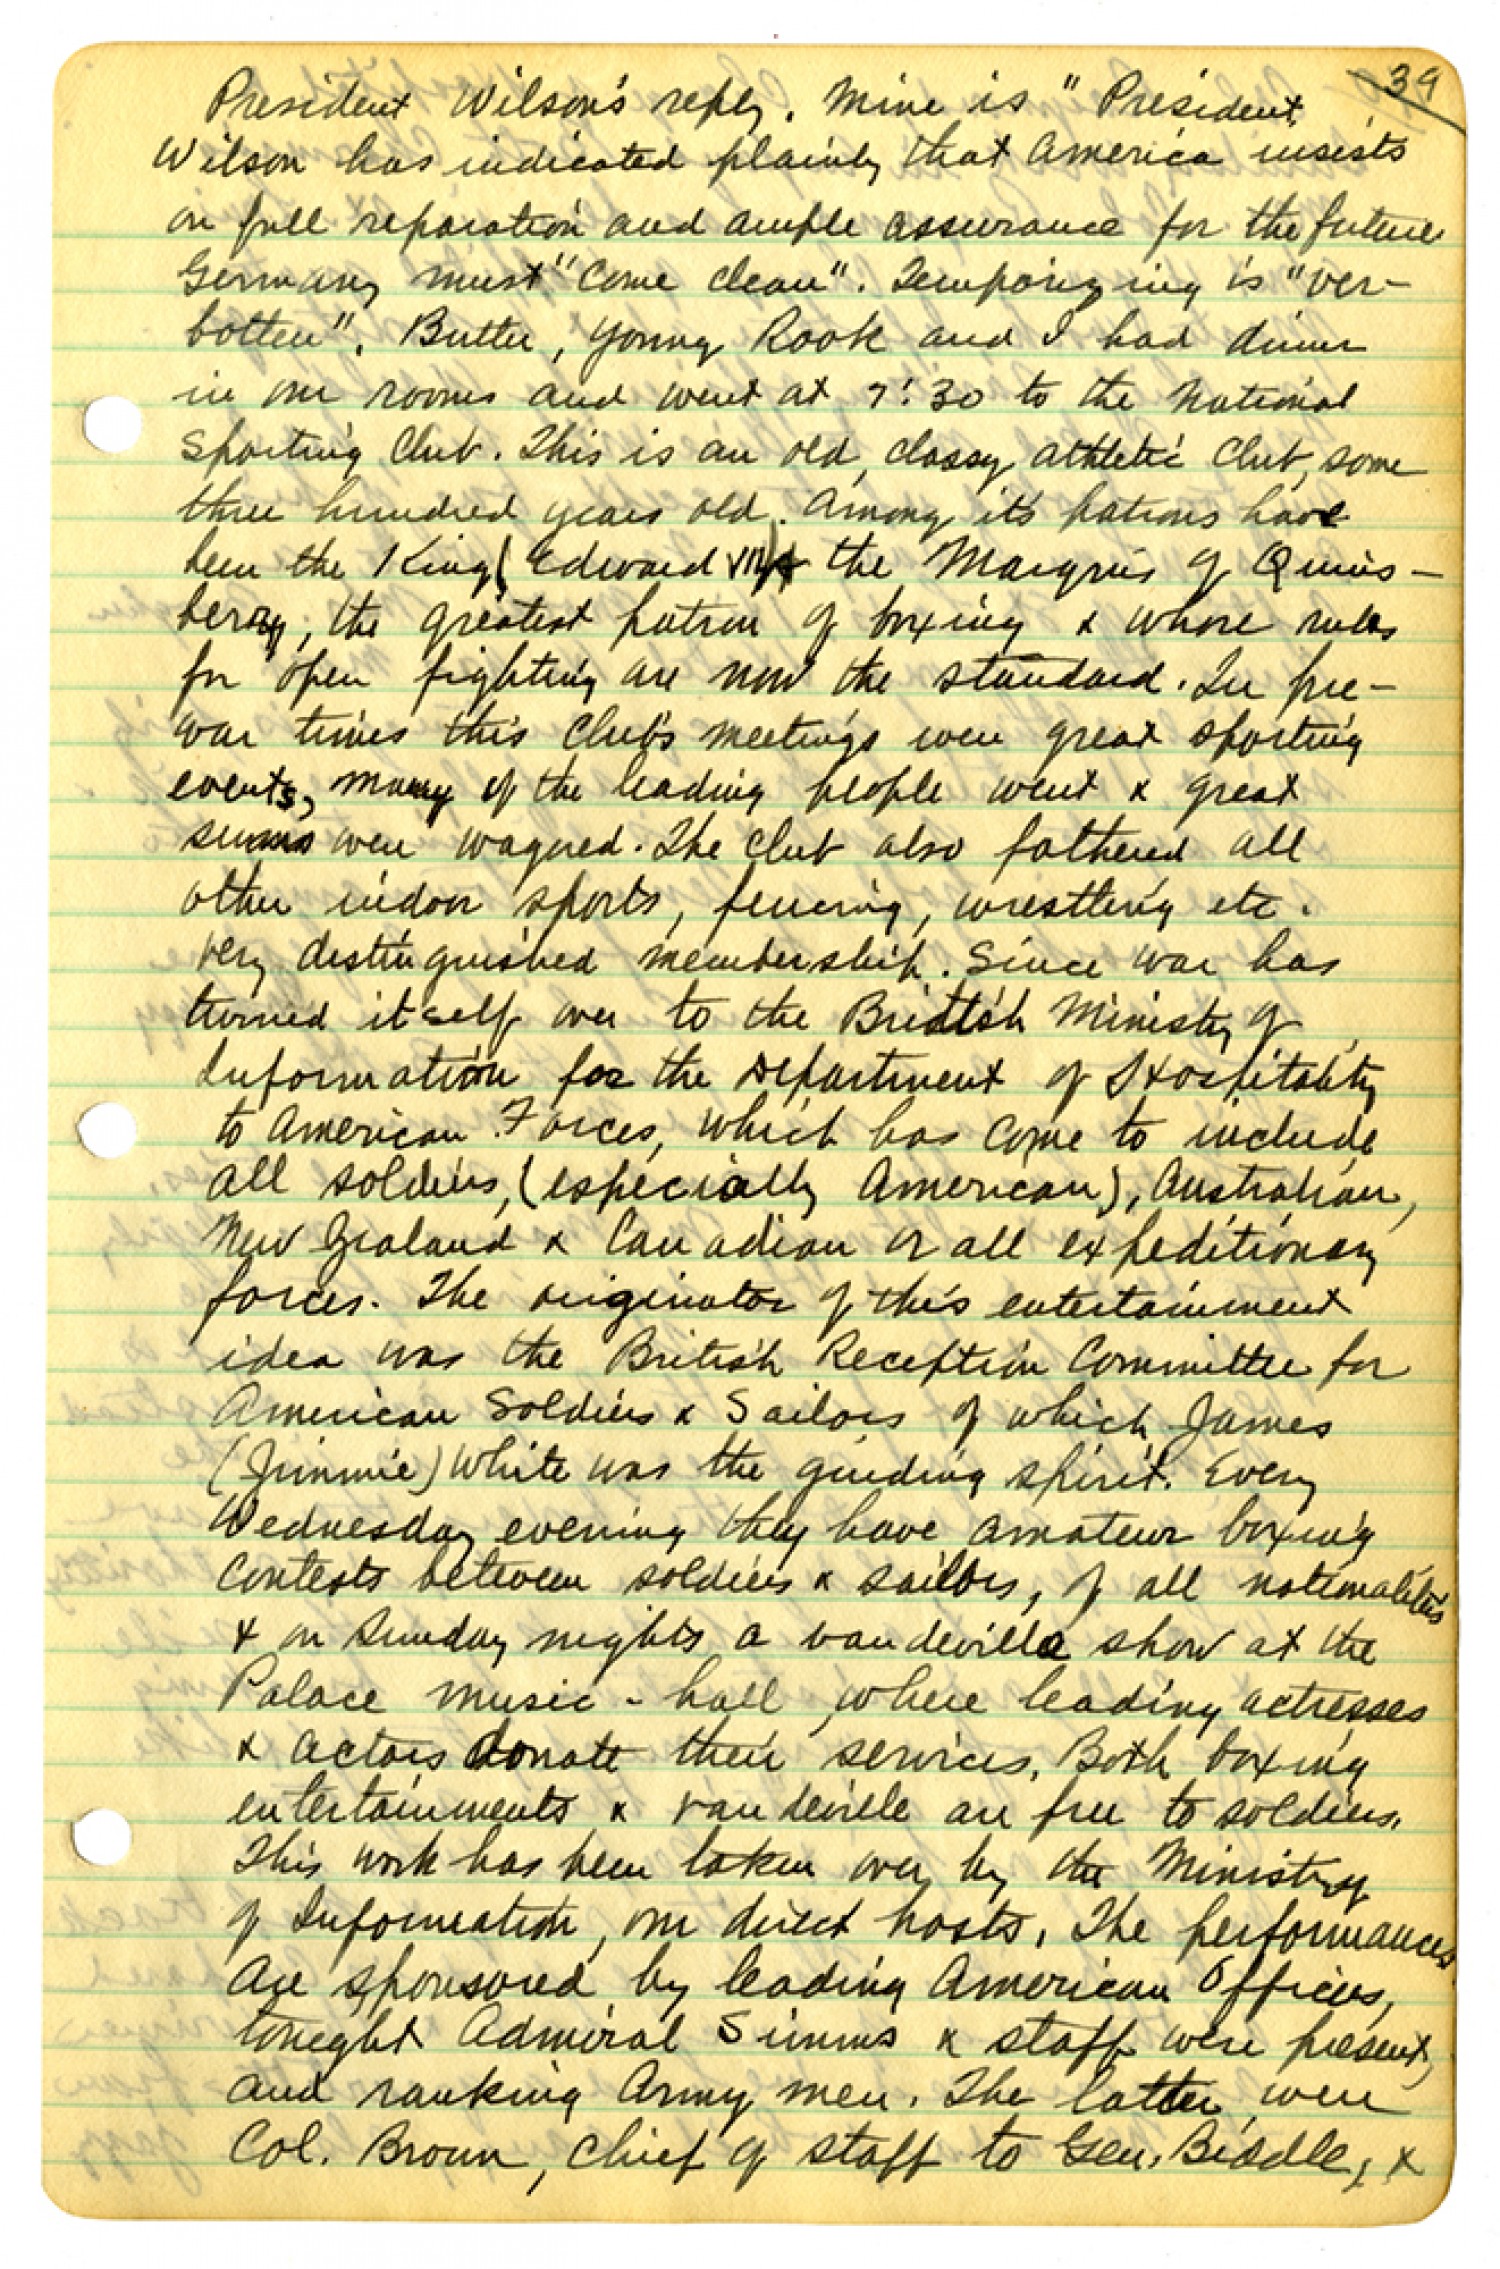 39
President Wilson's reply. Mine is "President
Wilson has indicated plainly that America insists
on full reparation and ample assurance for the future
Germany must "come clean". Temporizing is "ver-
botten". Butler, young Rook and I had dinner
in our rooms and went at 7:30 to the National
Sporting Club. This is an old, classy, athletic club, some
three hundred years old. Among it's patrons have
been the King (Edward VII) & the Marquis of Quins-
berry, the greatest patron of boxing & whose rules
for open fighting are now the standard. In pre-
war times this club's meetings were great sporting
events, many of the leading people went & great
sums were wagered. The club also fathered all
other indoor sports, fencing, wrestling etc.
Very distinguished membership. Since war has
turned itself over to the British Ministry of
Information for the Department of Hospitality
to American Forces, which has come to include
all soldiers, (especially American), Australian,
New Zealand & Canadian or all expeditionary
forces. The originator of this entertainment
idea was the British Reception Committee for
American Soldiers & Sailors of which James
(Jimmie) White was the guiding spirit. Every
Wednesday evening they have amateur boxing
contests between soldiers & sailors, of all nationalities
& on Sunday nights a vaudeville show at the
Palace music-hall, where leading actresses
& actors donate their services. Both boxing
entertainments & vaudeville are free to soldiers.
This work has been taken over by the Ministry
of Information, our direct hosts. The performances
are sponsored by leading American Officers,
tonight Admiral Simms & staff were present,
and ranking Army men. The latter were
Col. Brown, chief of staff to Gen. Biddle, &